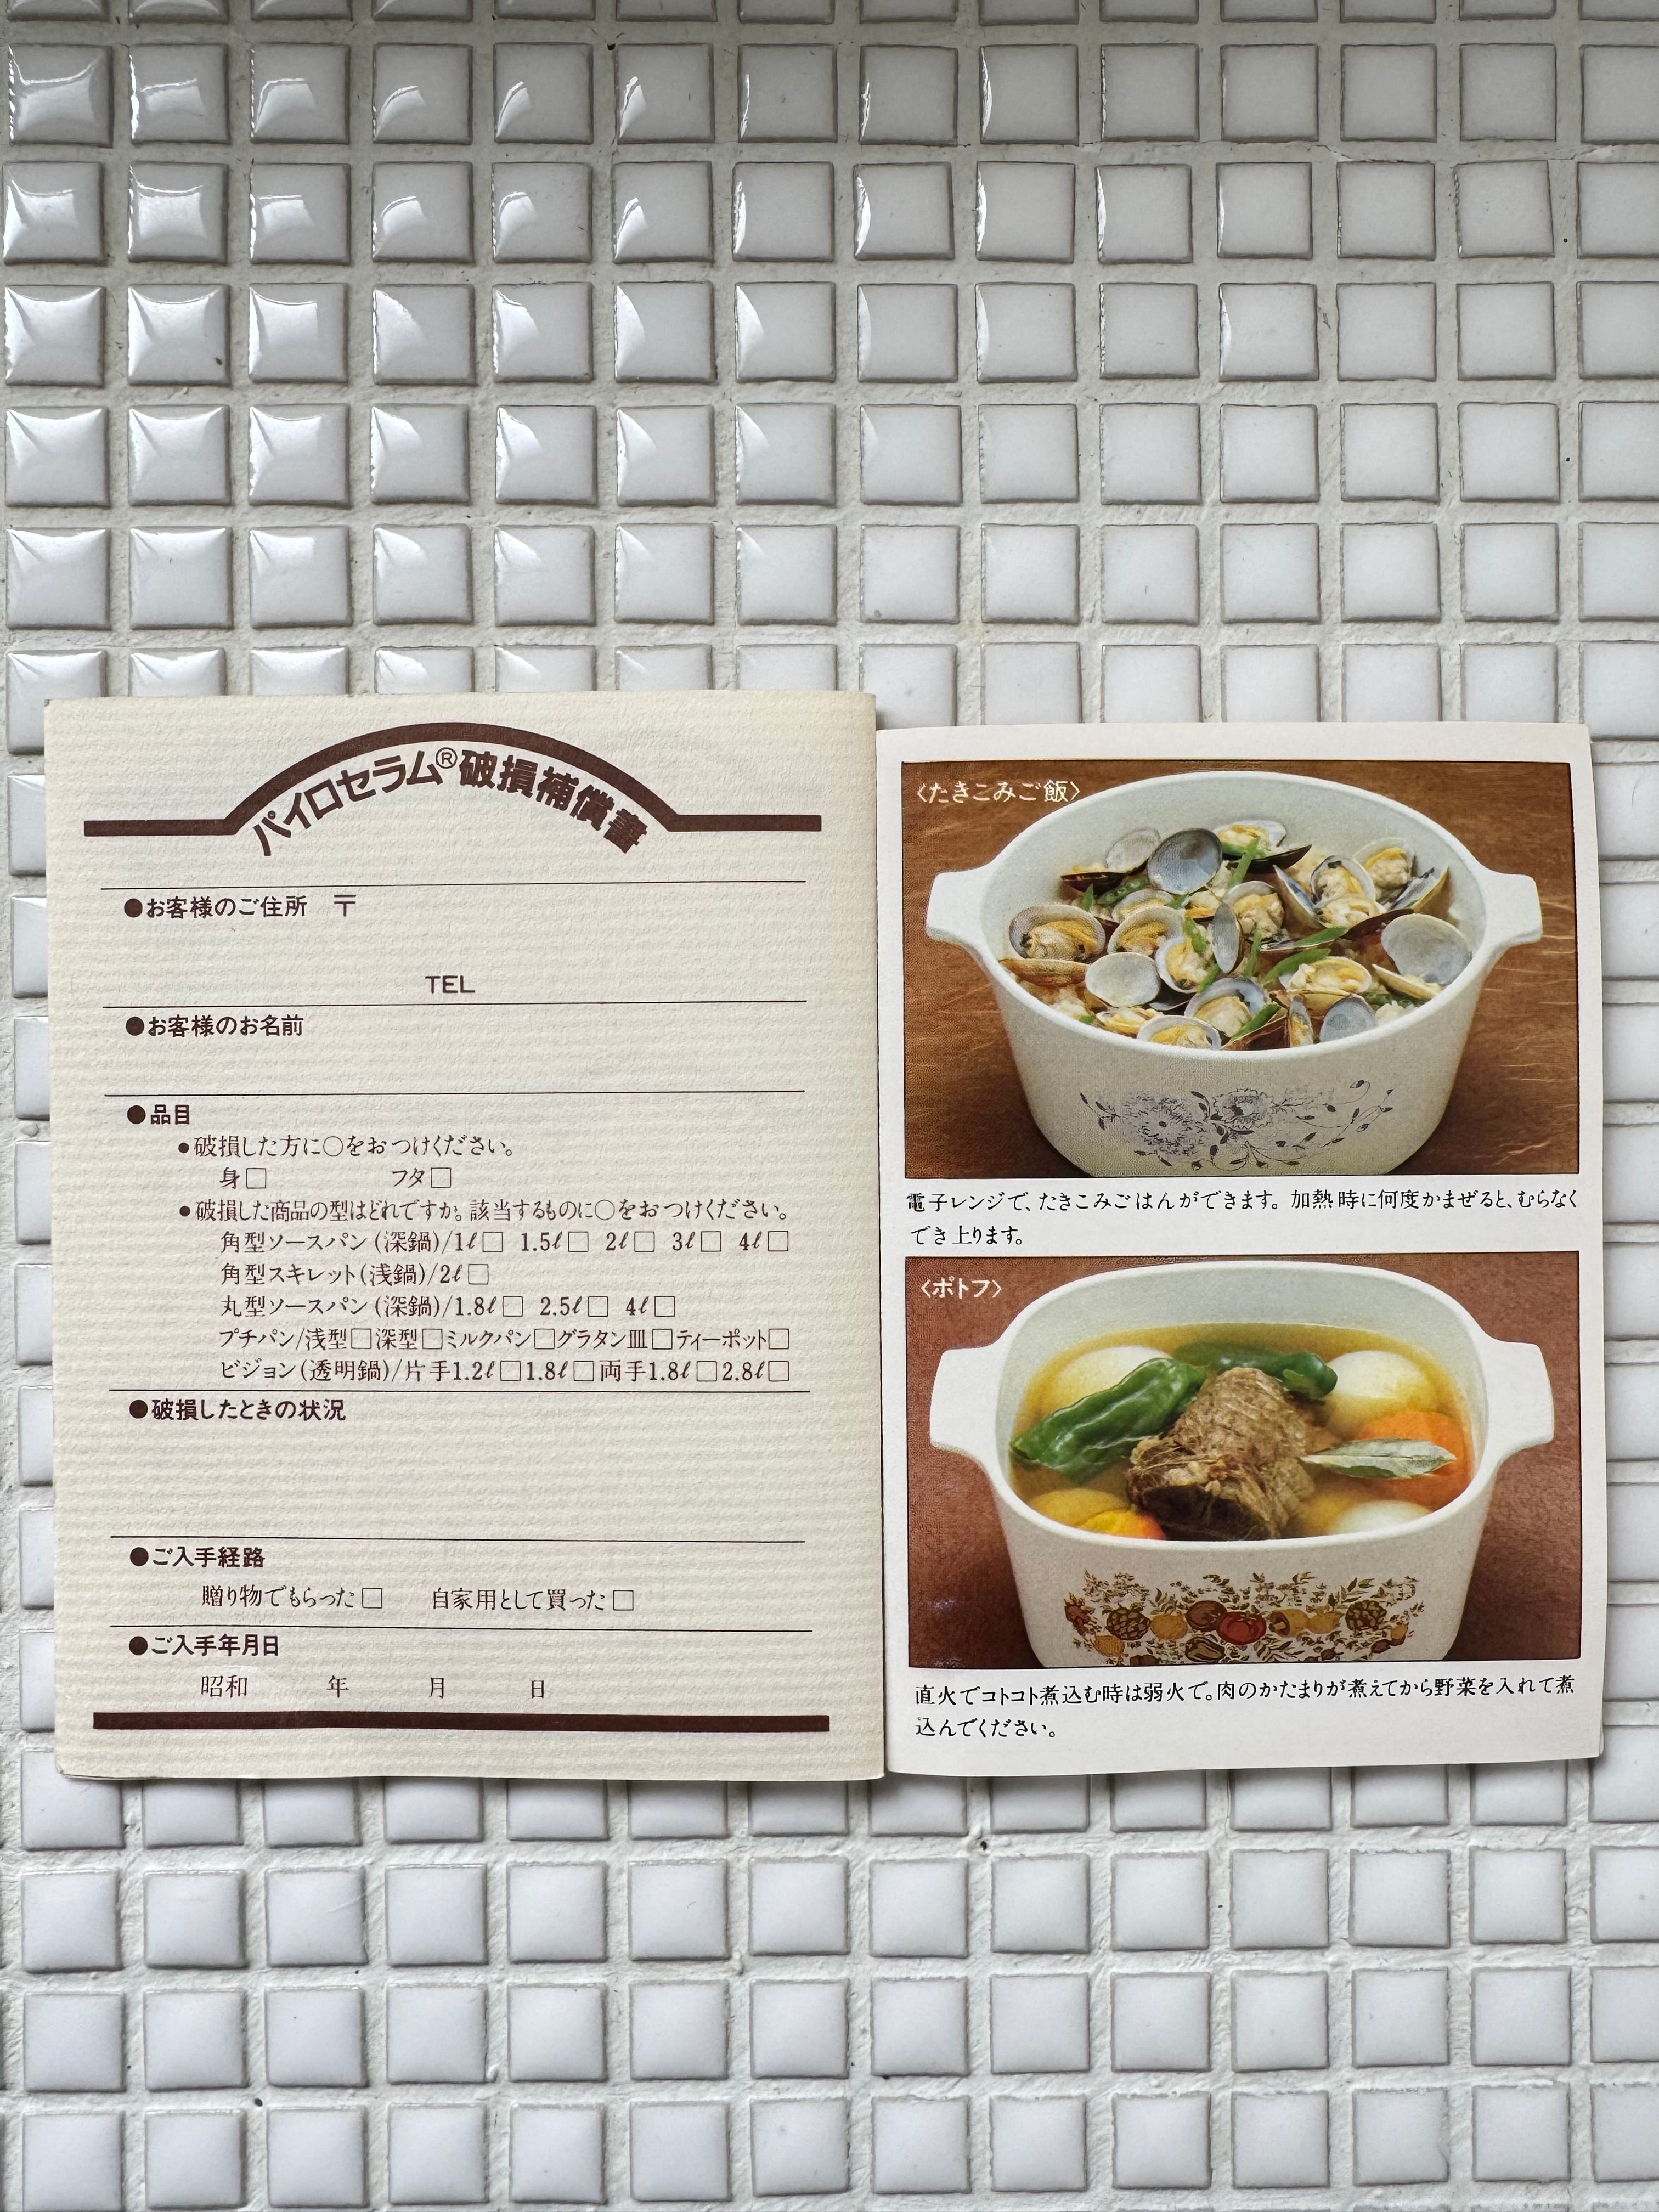 パイロセラム®破損補償書
●お客様のご住所 〒
TEL
●お客様のお名前
●品目
●破損した方に○をおつけください。
身□ フタ□
●破損した商品の型はどれですか。該当するものに○をおつけください。
角型ソースパン(深鍋)/1ℓ□ 1.5ℓ□ 2ℓ□ 3ℓ□ 4ℓ□
角型スキレット(浅鍋)/2ℓ□
丸型ソースパン(深鍋)/1.8ℓ□ 2.5ℓ□ 4ℓ□
プチパン/浅型□深型□ミルクパン□グラタン皿□ティーポット□
ビジョン(透明鍋)/片手1.2ℓ□1.8ℓ□両手1.8ℓ□2.8ℓ□
●破損したときの状況
●ご入手経路
贈り物でもらった□ 自家用として買った□
●ご入手年月日
昭和 年 月 日
〈たきこみご飯〉
電子レンジで、たきこみごはんができます。加熱時に何度かまぜると、むらなく
でき上ります。
〈ポトフ〉
直火でコトコト煮込む時は弱火で。肉のかたまりが煮えてから野菜を入れて煮
込んでください。